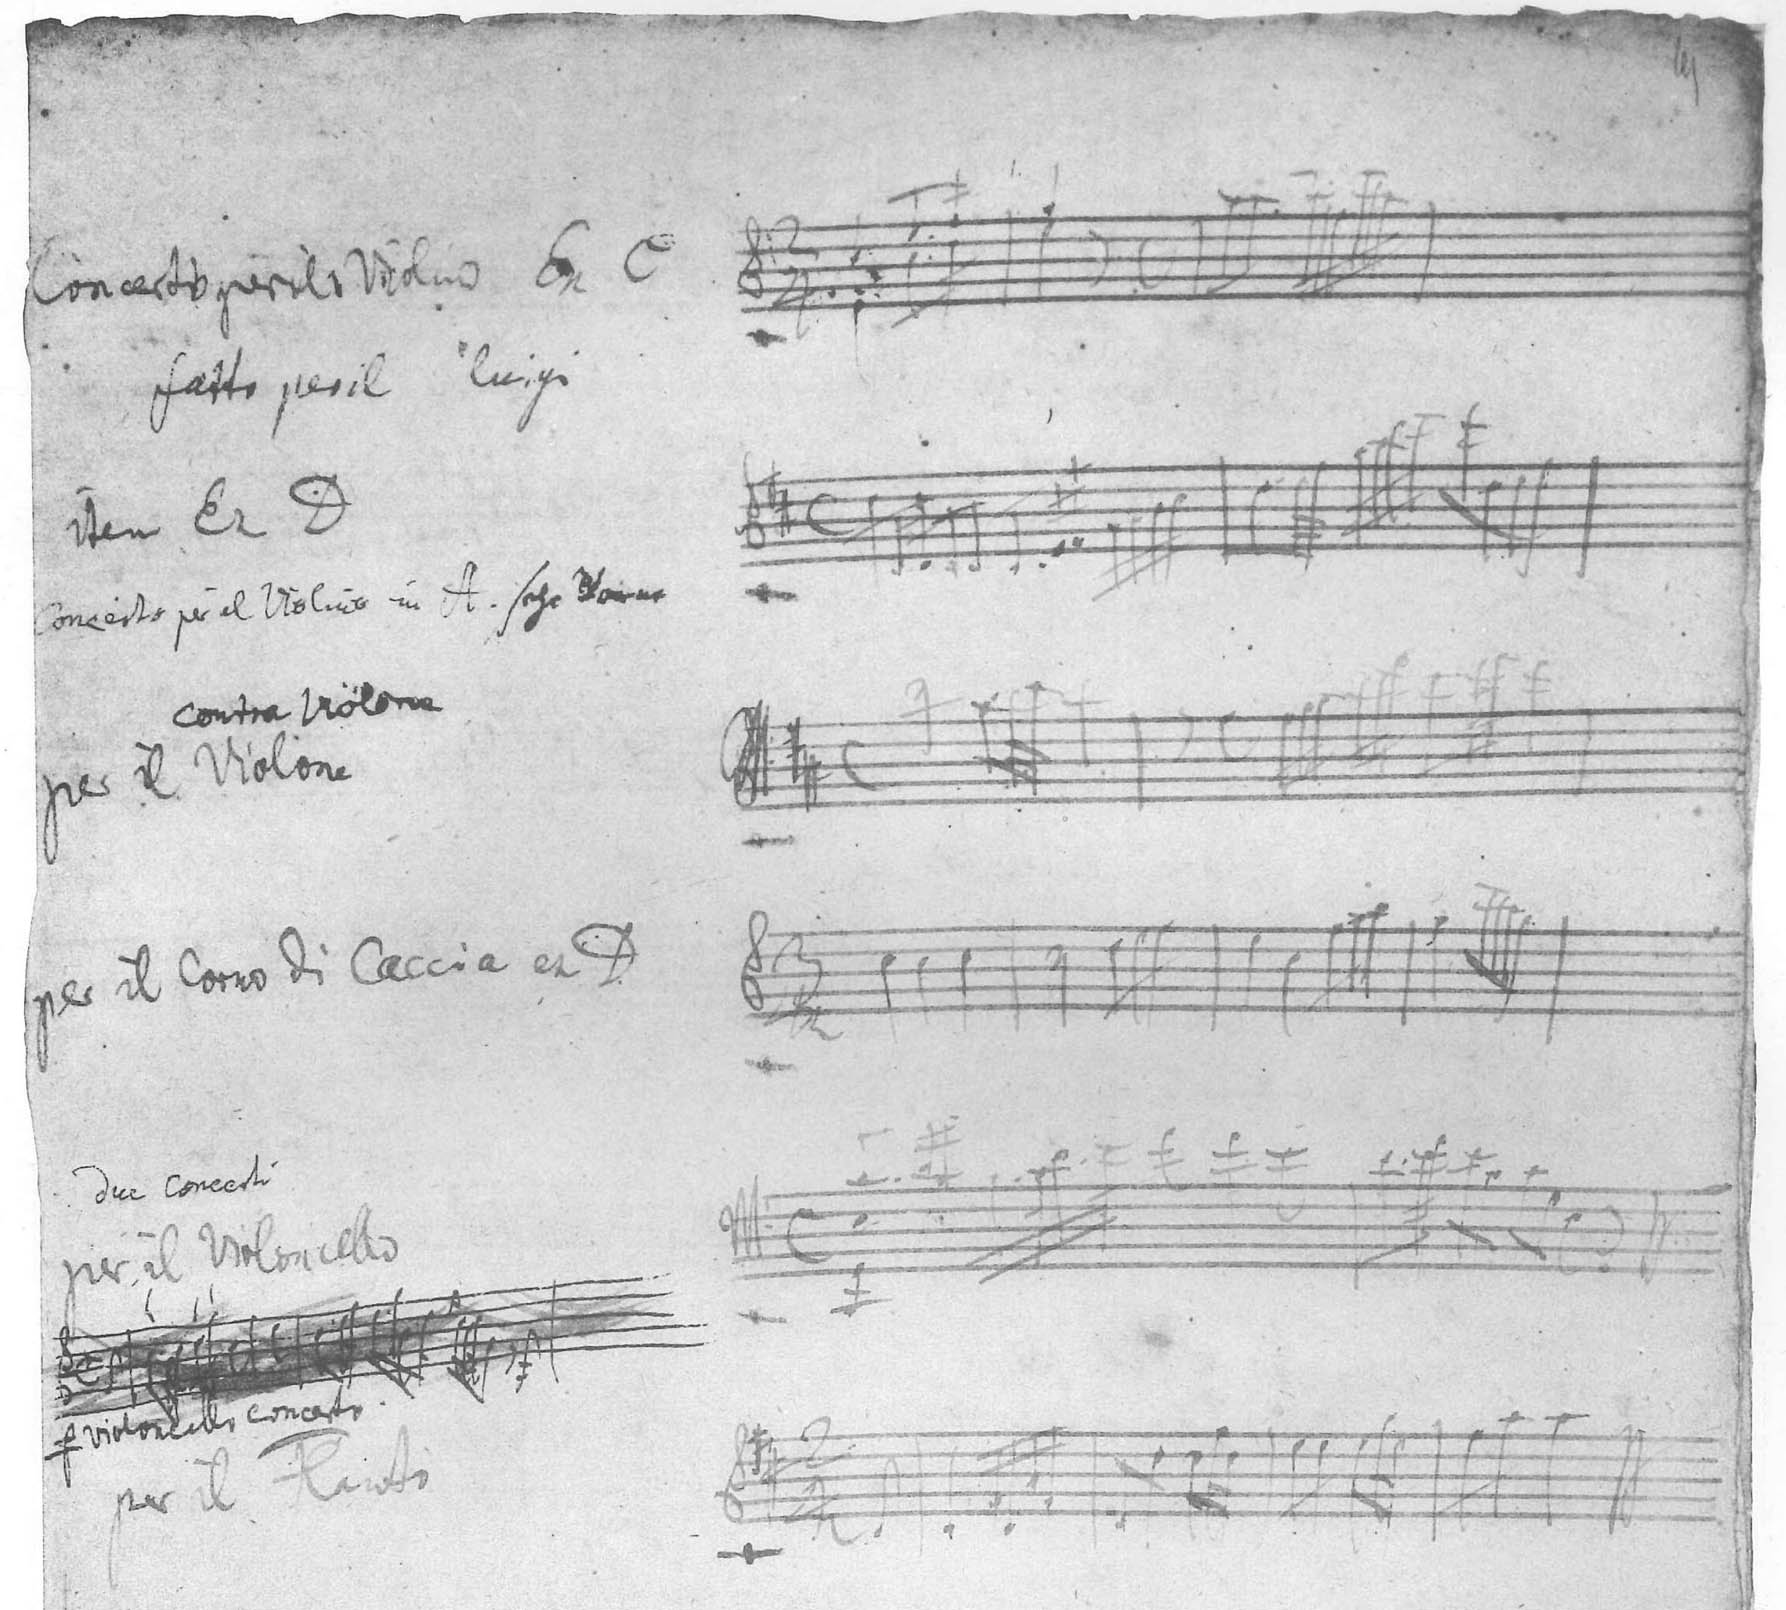 Concerto per il Violino Ex C
fatto per il luigi
item Ex D
Concerto per il Violino in A.
contra Violone
per il Violone
per il Corno di Caccia ex D
due concerti
per il Violoncello
violoncello concerto.
per il Flauto